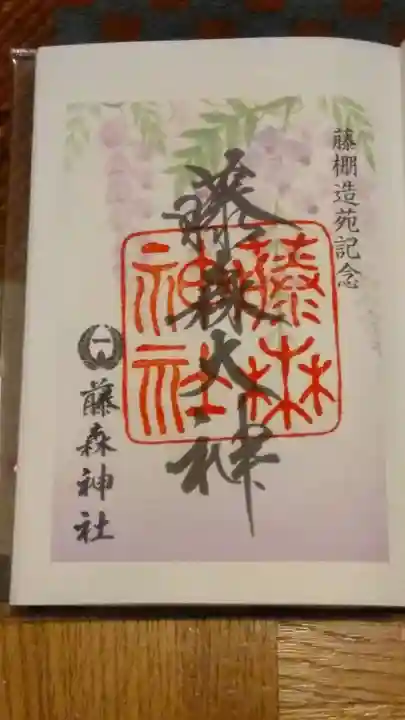 藤棚造苑記念
藤森大神
藤森神社
藤森神社